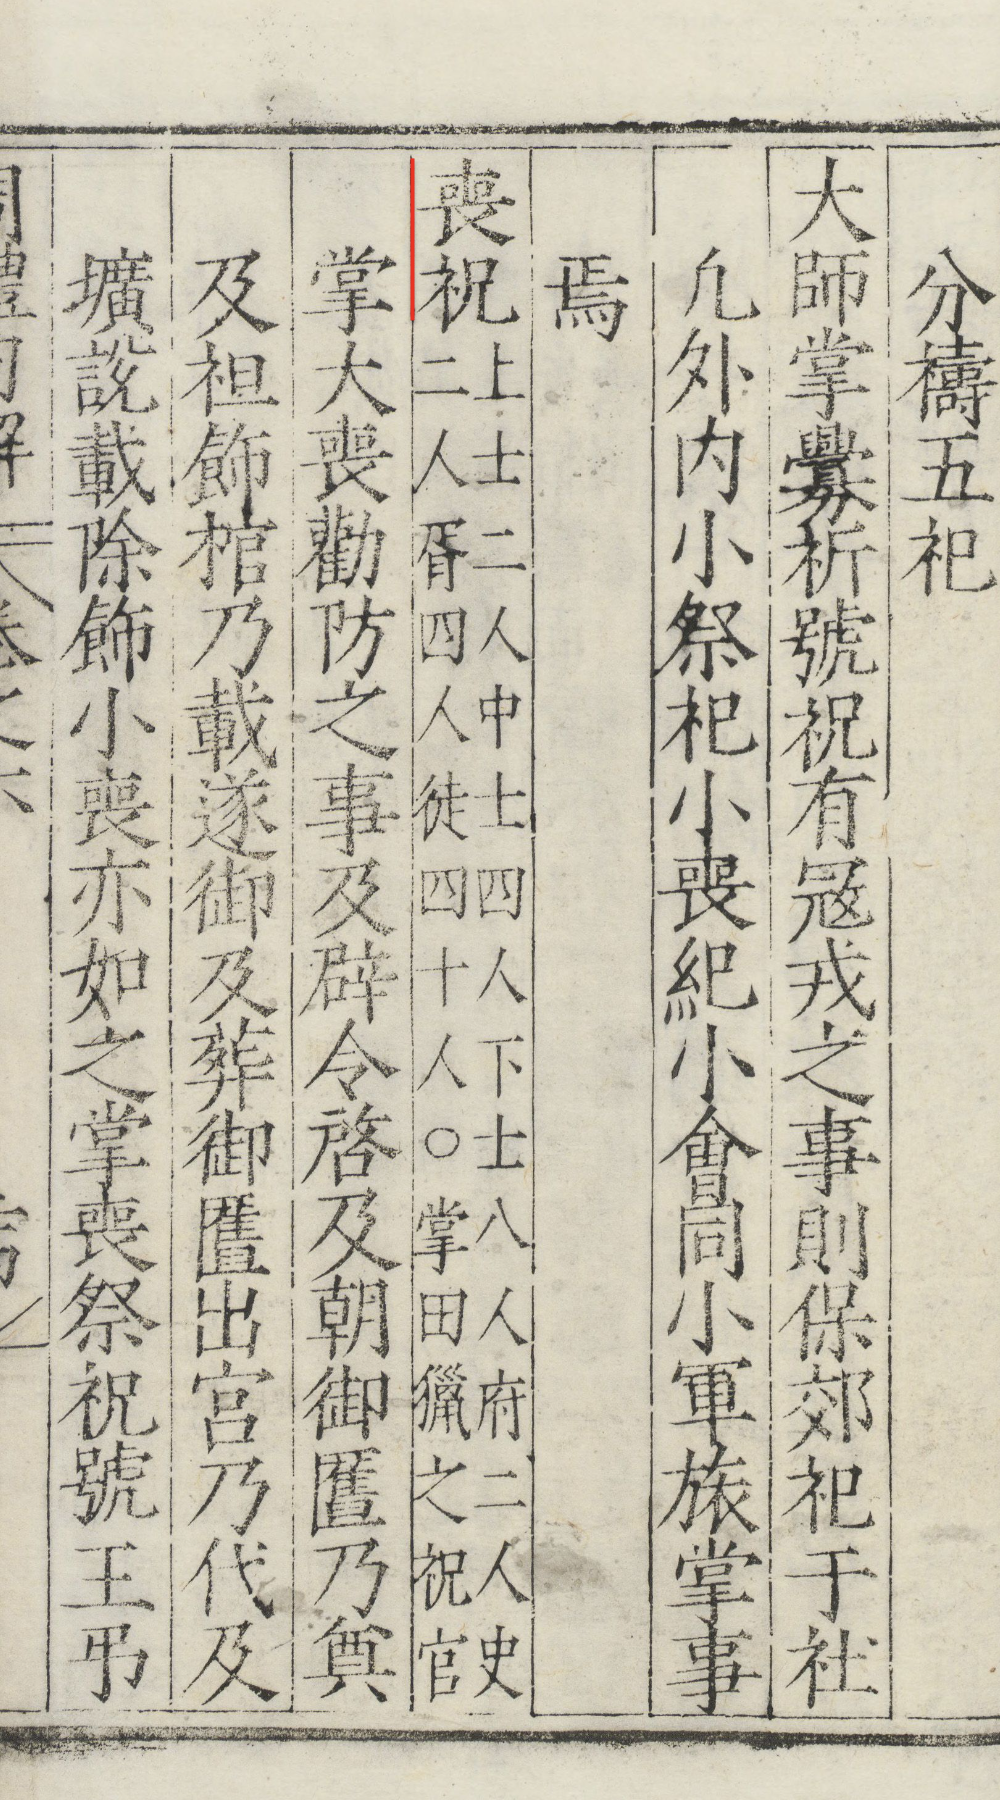 分禱五祀
大師掌釁祈號祝有寇戎之事則保郊祀于社
凢外内小祭祀小喪紀小會同小軍旅掌事
焉
喪祝上士二人中士四人下士八人府二人史
二人胥四人徒四十人○掌田獵之祝官
掌大喪勸防之事及辟令啓及朝御匶乃奠
及祖飾棺乃載遂御及葬御匶出宮乃代及
壙說載除飾小喪亦如之掌喪祭祝號王弔
周禮句解 卷之六